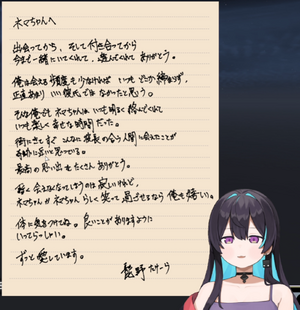 ネマちゃんへ
出会ってから、そして付き合ってから
今まで一緒にいてくれて、遊んでくれて ありがとう。
俺は会える頻度も少なければ いつも どたか締まらず、
正直あまり いい彼氏ではなかったと思う。
そんな俺でも ネマちゃんは いつも明るく 絡んでくれて
いつも楽しく 幸せな時間だった。
街にきてすぐ こんなに 波長の合う人間に会えたことが
奇跡に近いと思っている。
最高の思い出も たくさん ありがとう。
暫く会えなくなってしまうのは 寂しいけれど、
ネマちゃんが ネマちゃんらしく 笑って過ごせるなら 俺も嬉しい。
体に気をつけてね。良いことがありますように
いってらっしゃい。
ずっと愛しています。